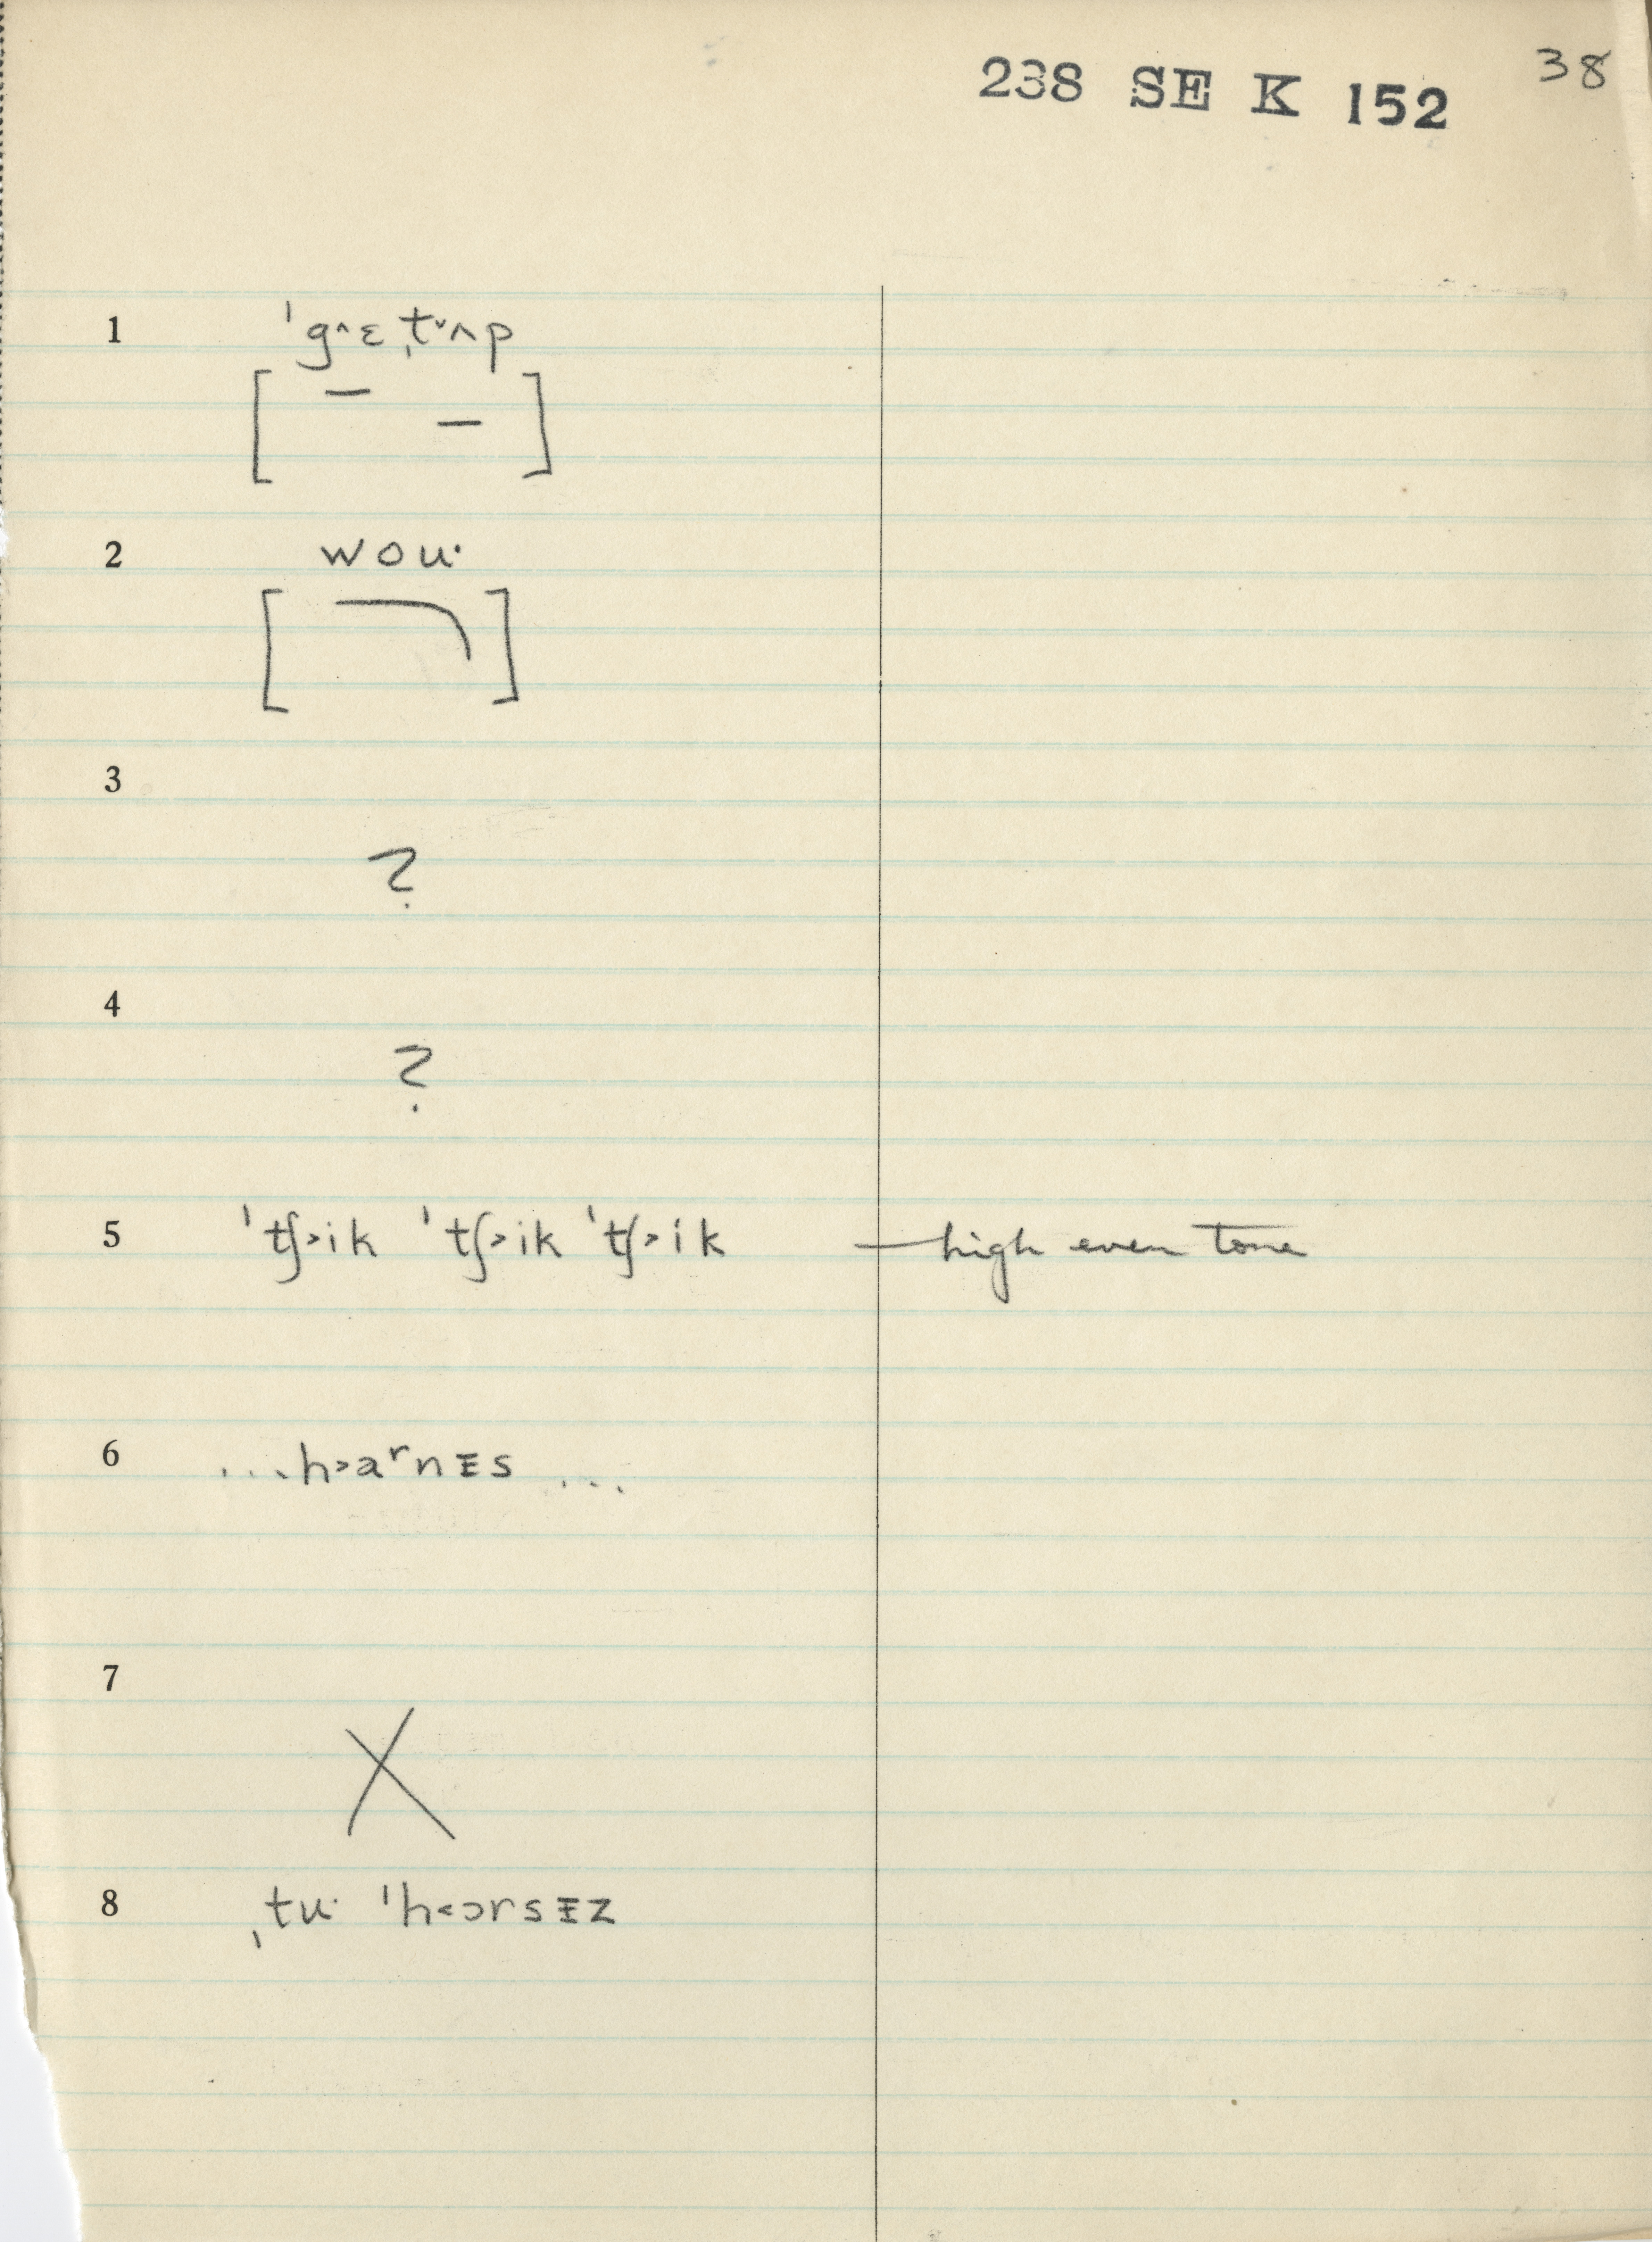 238 SE K 152 38
1 ˈg˄ɛˌt˅ʌp
[ – – ]
2 woʉ·
[ ]
3
?
4
?
5 ˈtʃ˃ik ˈtʃ˃ik ˈtʃ˃ik — high even tone
6 ...h˃aʳnᵻs ...
7
X
8 ˌtʉ· ˈh˂ɔrsᵻz